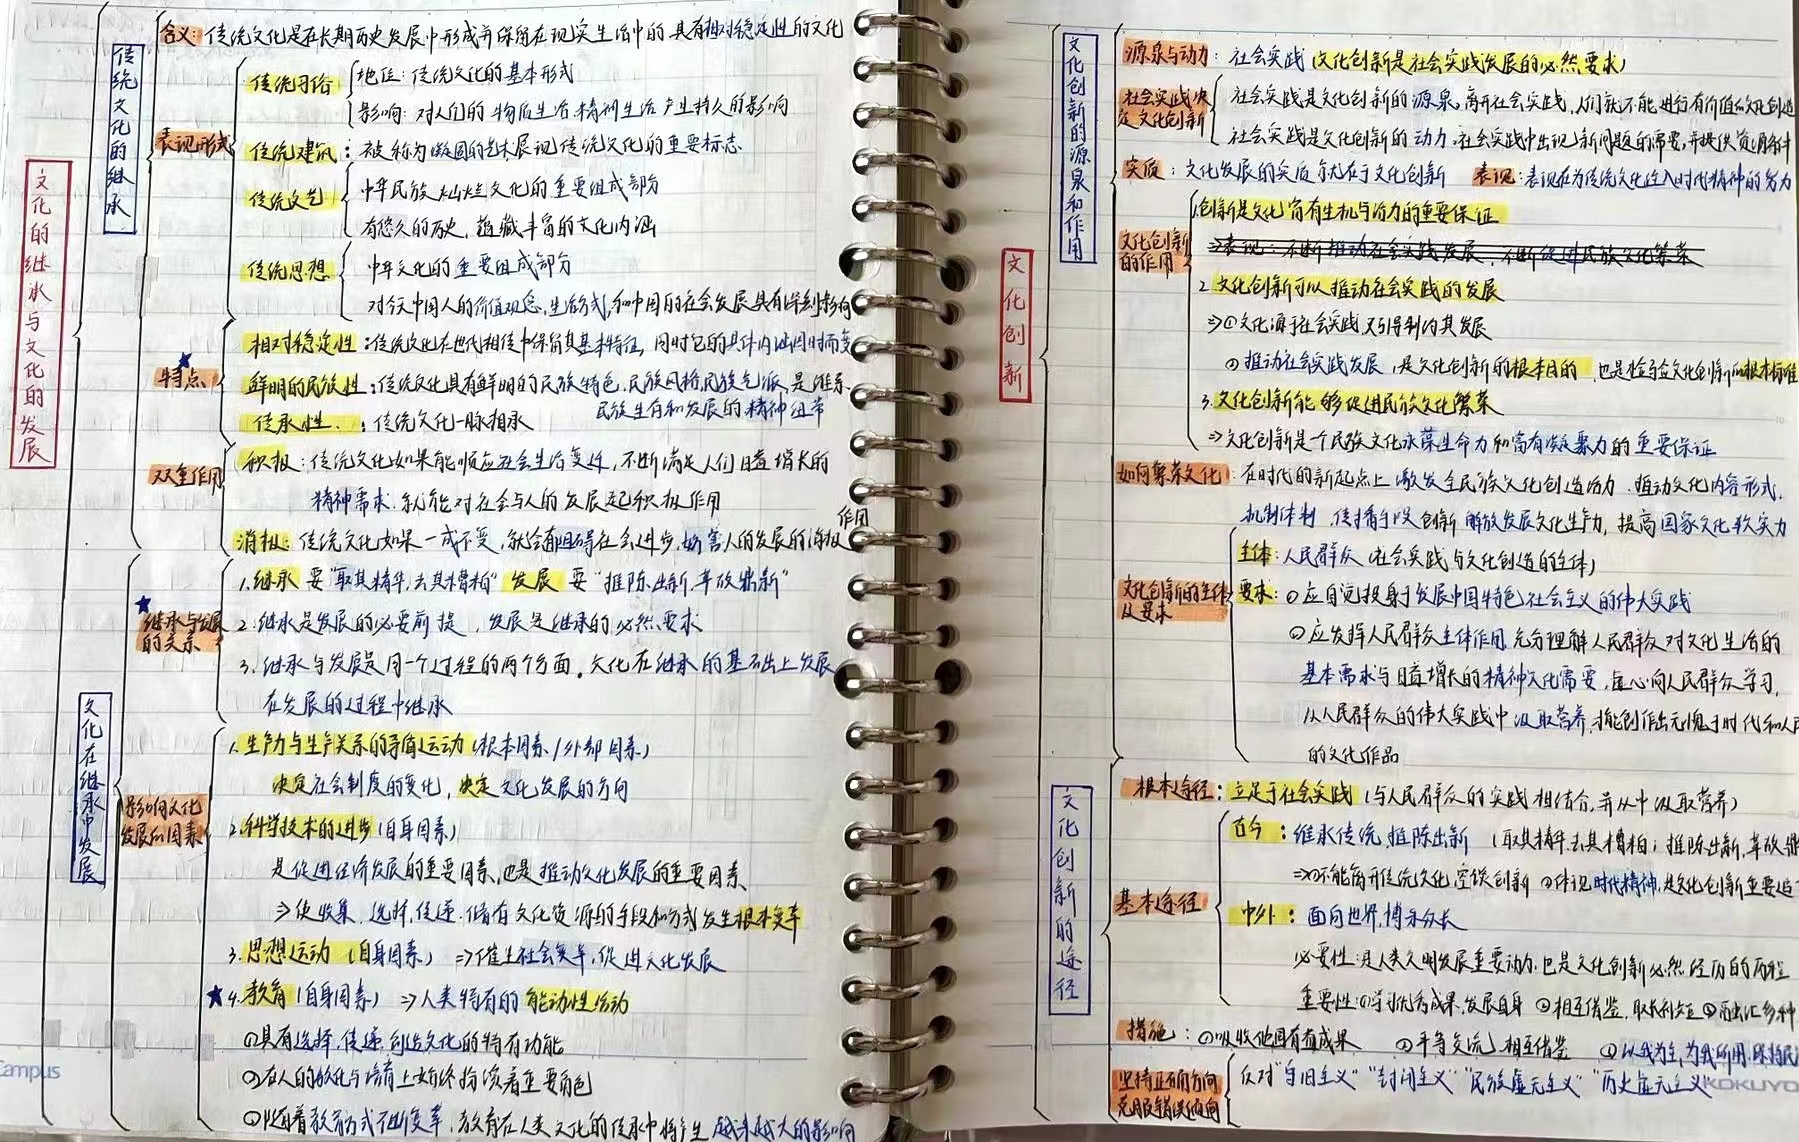 文化的继承与文化的发展
传统文化的继承
含义: 传统文化是在长期历史发展中形成并保留在现实生活中的具有相对稳定性的文化
表现形式
传统习俗
地位: 传统文化的基本形式
影响: 对人们的物质生活.精神生活产生持久的影响
传统建筑: 被称为凝固的艺术展现传统文化的重要标志
传统文艺
中华民族灿烂文化的重要组成部分
有悠久的历史, 蕴藏丰富的文化内涵
传统思想
中华文化的重要组成部分
对今天中国人的价值观念,生活方式,和中国的社会发展具有深刻影响
特点
相对稳定性: 传统文化在世代相传中保留其基本特征, 同时它的具体内涵因时而变
鲜明的民族性: 传统文化具有鲜明的民族特色.民族风格,民族气派,是维系
民族生存和发展的精神纽带
传承性: 传统文化一脉相承
双重作用
积极: 传统文化如果能顺应社会生活变迁, 不断满足人们日益增长的
精神需求. 就能对社会与人的发展起积极作用
消极: 传统文化如果一成不变, 就会有阻碍社会进步,妨害人的发展的消极
作用
文化在继承中发展
继承与发展的关系
1.继承 要"取其精华,去其糟粕" 发展 要"推陈出新,革故鼎新"
2.继承是发展的必要前提, 发展是继承的必然要求
3.继承与发展是同一个过程的两个方面。文化在继承的基础上发展
在发展的过程中继承
影响文化发展的因素
1.生产力与生产关系的矛盾运动 (根本因素/外部因素)
决定社会制度的变化, 决定文化发展的方向
2.科学技术的进步 (自身因素)
是促进经济发展的重要因素,也是推动文化发展的重要因素
⇒使收集.选择.传递.储存文化资源的手段和方式发生根本变革
3.思想运动 (自身因素) ⇒催生社会变革,促进文化发展
4.教育 (自身因素) ⇒人类特有的能动性活动
①具有选择.传递.创造文化的特有功能
②在人的教化与培育上始终扮演着重要角色
③随着教育方式不断变革, 教育在人类文化的传承中将产生越来越大的影响
Campus
文化创新
文化创新的源泉和作用
源泉与动力: 社会实践 (文化创新是社会实践发展的必然要求)
社会实践决定文化创新
社会实践是文化创新的源泉,离开社会实践,人们就不能进行有价值的文化创造
社会实践是文化创新的动力.社会实践中出现新问题的需要,并提供资源条件
实质: 文化发展的实质就在于文化创新 表现: 表现在为传统文化注入时代精神的努力
文化创新的作用
1.创新是文化富有生机与活力的重要保证
⇒表现: 不断推动社会实践发展, 不断促进民族文化繁荣
2.文化创新可以推动社会实践的发展
⇒①文化源于社会实践.又引导制约其发展
②推动社会实践发展,是文化创新的根本目的, 也是检验文化创新的根本标准
3.文化创新能够促进民族文化繁荣
⇒文化创新是一个民族文化永葆生命力和富有凝聚力的重要保证
如何繁荣文化: 在时代的新起点上激发全民族文化创造活力, 推动文化内容形式.
机制体制.传播手段创新 解放发展文化生产力, 提高国家文化软实力
文化创新的主体及要求
主体: 人民群众 (社会实践与文化创造的主体)
要求: ①应自觉投身于发展中国特色社会主义的伟大实践
②应发挥人民群众主体作用.充分理解人民群众对文化生活的
基本需求与日益增长的精神文化需要, 虚心向人民群众学习,
从人民群众的伟大实践中汲取营养.才能创作出无愧于时代和人民
的文化作品
文化创新的途径
根本途径: 立足于社会实践 (与人民群众的实践相结合,并从中汲取营养)
基本途径
古今: 继承传统,推陈出新 (取其精华.去其糟粕; 推陈出新,革故鼎
⇒①不能离开传统文化,空谈创新 ②体现时代精神,是文化创新重要追
中外: 面向世界,博采众长
必要性: 是人类文明发展重要动力.也是文化创新必然经历的历程
重要性: ①学习优秀成果,发展自身 ②相互借鉴,取长补短 ③融汇多种
措施: ①吸收他国有益成果 ②平等交流,相互借鉴 ③以我为主,为我所用.保持民
坚持正确方向克服错误倾向
反对"守旧主义" "封闭主义" "民族虚无主义" "历史虚无主义"
KOKUYO